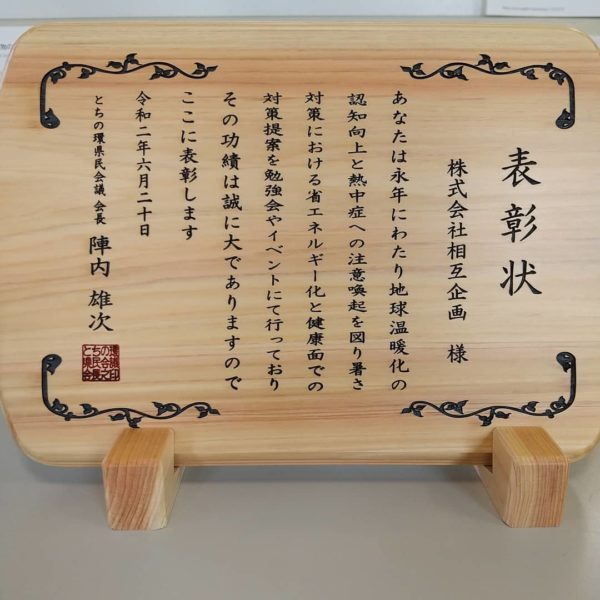 表彰状
株式会社相互企画 様
あなたは永年にわたり地球温暖化の
認知向上と熱中症への注意喚起を図り暑さ
対策における省エネルギー化と健康面での
対策提案を勉強会やイベントにて行っており
その功績は誠に大でありますので
ここに表彰します
令和二年六月二十日
とちの環県民会議 会長 陣内 雄次